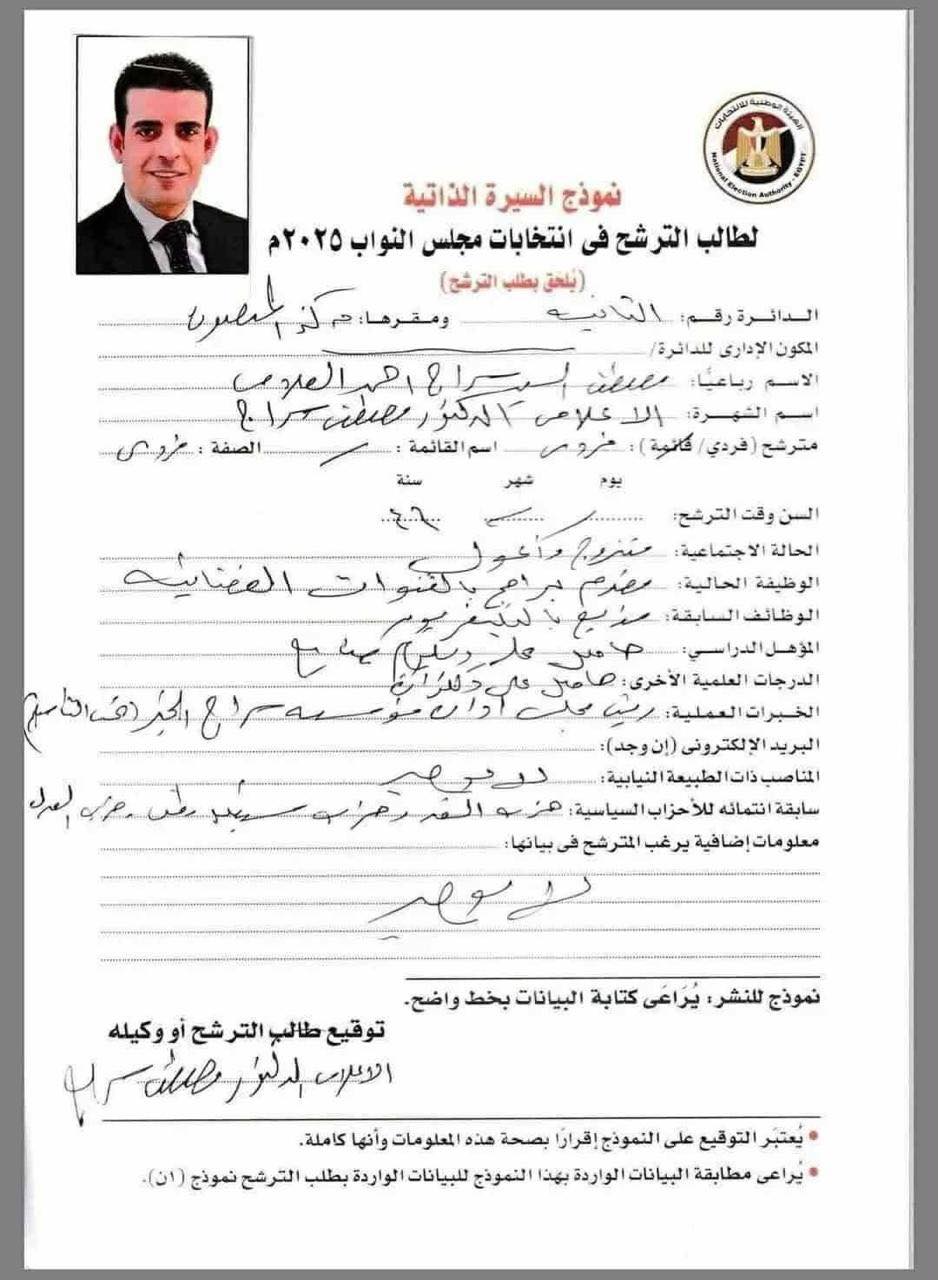 الهيئة الوطنية للانتخابات
National Election Authority - EGYPT
نموذج السيرة الذاتية
لطالب الترشح فى انتخابات مجلس النواب ٢٠٢٥م
(يُلحَق بطلب الترشح)
الدائرة رقم: الثانية ومقرها: مركز المنصورة
المكون الإدارى للدائرة/
الاسم رباعيًا: مصطفى السيد سراج احمد
اسم الشهرة: الاعلامى الدكتور مصطفى سراج
مترشح (فردي/ قائمة): فردى اسم القائمة: الصفة: فردى
يوم شهر سنة
السن وقت الترشح: ٤٦
الحالة الاجتماعية: متزوج وأعول
الوظيفة الحالية: مقدم برامج بالقنوات الفضائية
الوظائف السابقة: مذيع بالتليفزيون
المؤهل الدراسي: حاصل على دبلوم صنايع
الدرجات العلمية الأخرى: حاصل على دكتوراة
الخبرات العملية: رئيس مجلس ادارة مؤسسة سراج الخير (تحت التأسيس)
البريد الإلكترونى (إن وجد):
المناصب ذات الطبيعة النيابية: لا يوجد
سابقة انتمائه للأحزاب السياسية: حزب وحزب مستقبل وطن وحزب العدل
معلومات إضافية يرغب المترشح فى بيانها:
لا يوجد
نموذج للنشر: يُرَاعَى كتابة البيانات بخط واضح.
توقيع طالب الترشح أو وكيله
الاعلامى الدكتور مصطفى سراج
• يُعتبَر التوقيع على النموذج إقرارًا بصحة هذه المعلومات وأنها كاملة.
• يُراعى مطابقة البيانات الواردة بهذا النموذج للبيانات الواردة بطلب الترشح نموذج (١ن).